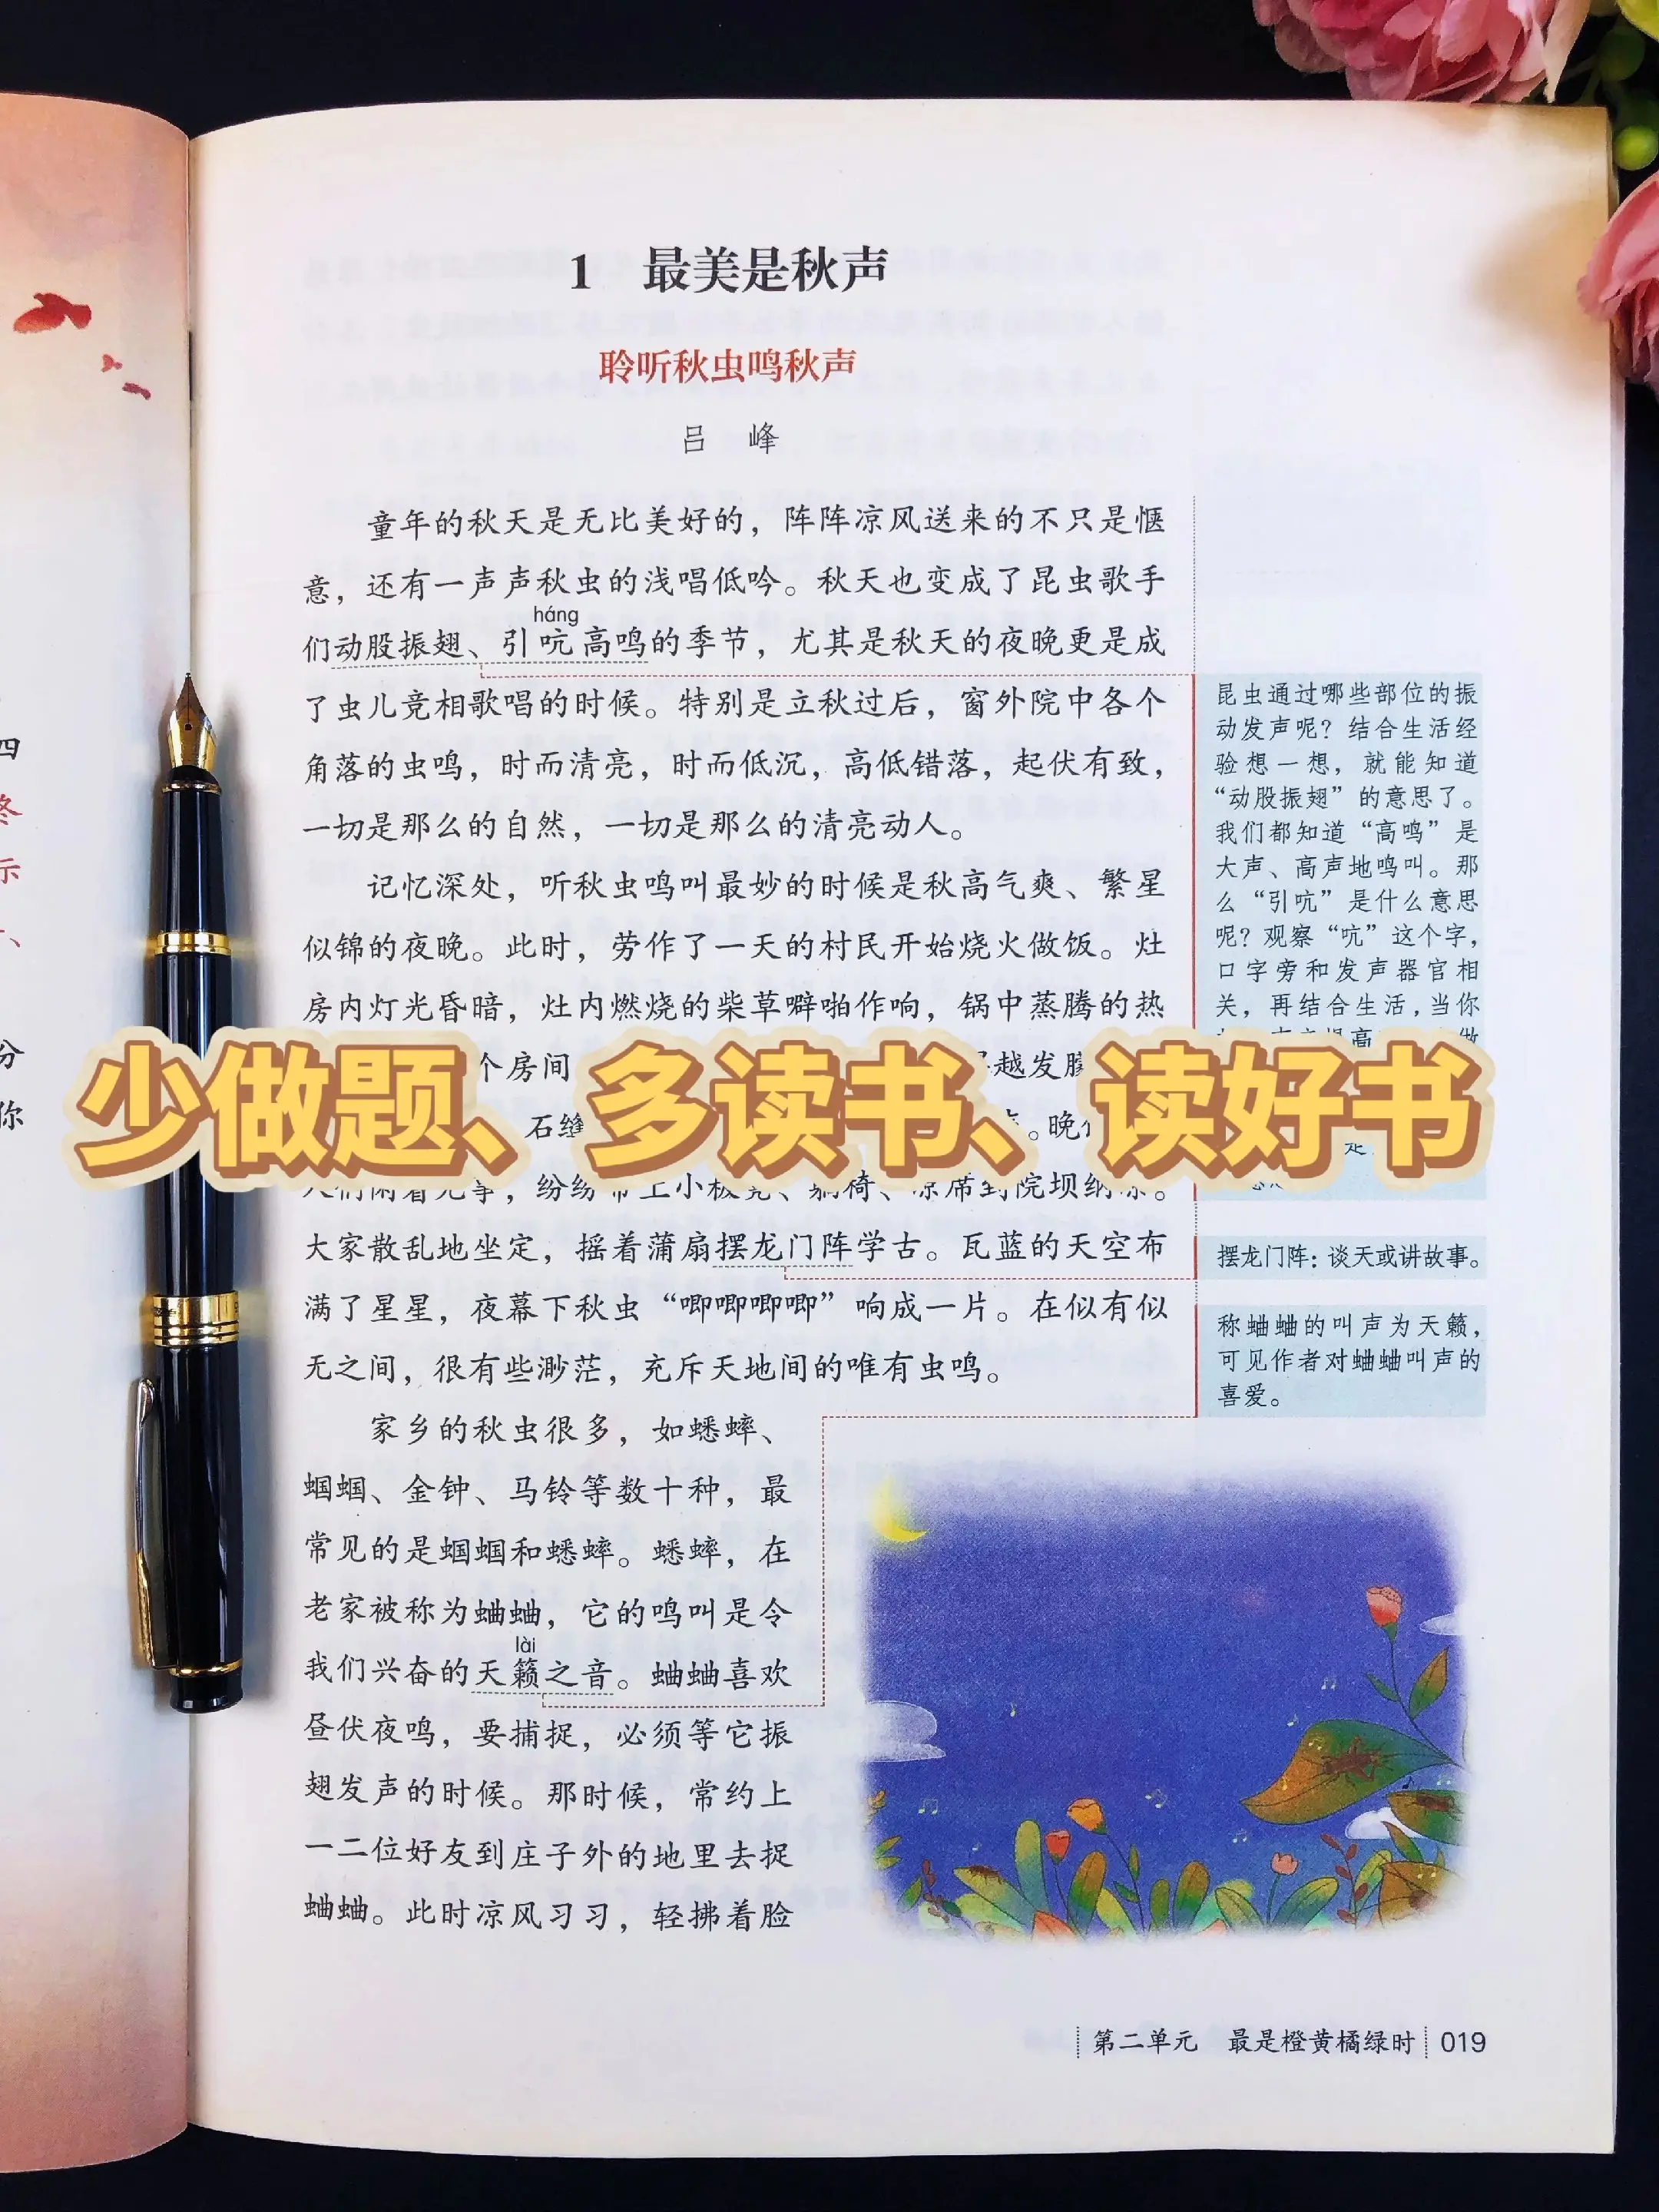 1 最美是秋声
聆听秋虫鸣秋声
吕 峰
童年的秋天是无比美好的，阵阵凉风送来的不只是惬
意，还有一声声秋虫的浅唱低吟。秋天也变成了昆虫歌手
háng
们动股振翅、引吭高鸣的季节，尤其是秋天的夜晚更是成
了虫儿竞相歌唱的时候。特别是立秋过后，窗外院中各个
角落的虫鸣，时而清亮，时而低沉，高低错落，起伏有致，
一切是那么的自然，一切是那么的清亮动人。
记忆深处，听秋虫鸣叫最妙的时候是秋高气爽、繁星
似锦的夜晚。此时，劳作了一天的村民开始烧火做饭。灶
房内灯光昏暗，灶内燃烧的柴草噼啪作响，锅中蒸腾的热
个房间 越发
少做题、多读书、读好书
石缝 。晚
人们闲着无事，纷纷带上小板凳、躺椅、凉席到院坝纳凉。
大家散乱地坐定，摇着蒲扇摆龙门阵学古。瓦蓝的天空布
满了星星，夜幕下秋虫“唧唧唧唧”响成一片。在似有似
无之间，很有些渺茫，充斥天地间的唯有虫鸣。
家乡的秋虫很多，如蟋蟀、
蝈蝈、金钟、马铃等数十种，最
常见的是蝈蝈和蟋蟀。蟋蟀，在
老家被称为蛐蛐，它的鸣叫是令
lài
我们兴奋的天籁之音。蛐蛐喜欢
昼伏夜鸣，要捕捉，必须等它振
翅发声的时候。那时候，常约上
一二位好友到庄子外的地里去捉
蛐蛐。此时凉风习习，轻拂着脸
昆虫通过哪些部位的振
动发声呢？结合生活经
验想一想，就能知道
“动股振翅”的意思了。
我们都知道“高鸣”是
大声、高声地鸣叫。那
么“引吭”是什么意思
呢？观察“吭”这个字，
口字旁和发声器官相
关，再结合生活，当你
摆龙门阵：谈天或讲故事。
称蛐蛐的叫声为天籁，
可见作者对蛐蛐叫声的
喜爱。
第二单元 最是橙黄橘绿时 019
四
终
示
、
分
你